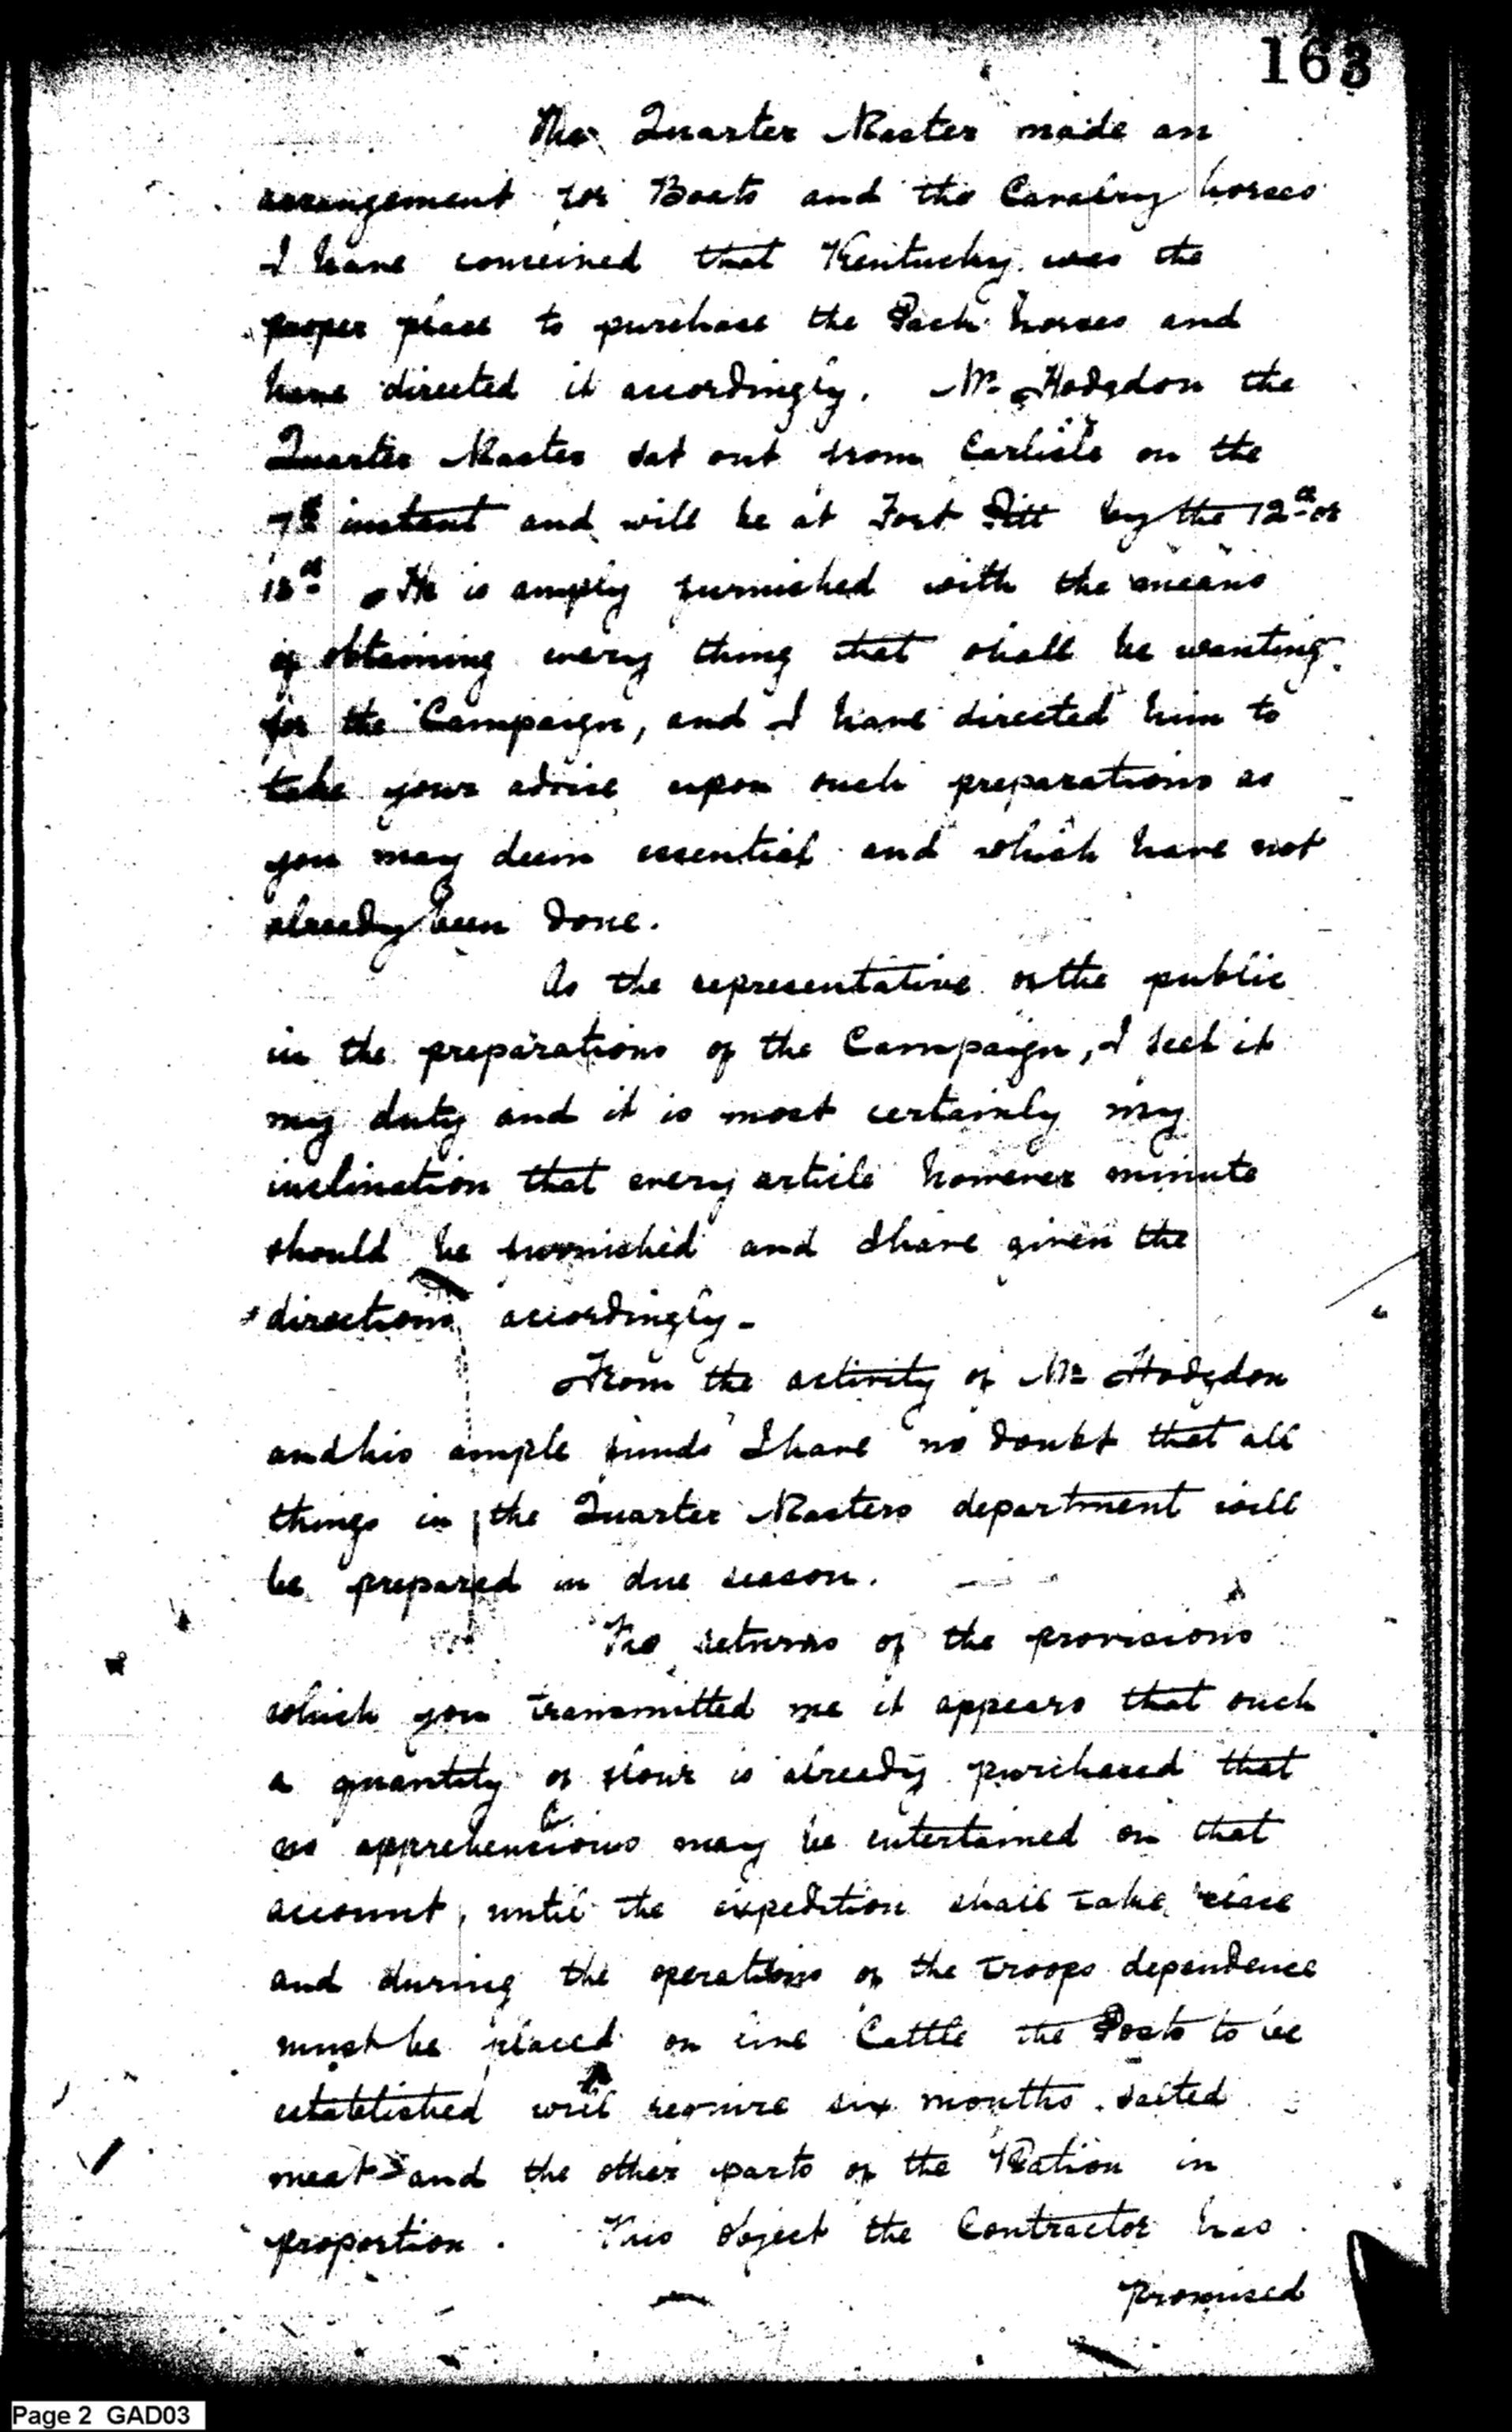 163
The Quarter Master made an
arrangement for Boats and the Cavalry horses
I have conceived that Kentucky was the
proper place to purchase the Pack horses and
have directed it accordingly. Mr Hodgdon the
Quarter Master sat out from Carlisle on the
7th instant and will be at Fort Pitt by the 12th or
13th He is amply furnished with the means
of obtaining every thing that shall be wanting
for the Campaign, and I have directed him to
take your advice upon such preparations as
you may deem essential and which have not
already been done.
As the representative of the public
in the preparations of the Campaign, I feel it
my duty and it is most certainly my
inclination that every article however minute
should be furnished and I have given the
directions accordingly -
From the activity of Mr Hodgdon
and his ample funds I have no doubt that all
things in the Quarter Masters department will
be prepared in due season.
returns of the provisions
which you transmitted me it appears that such
a quantity of flour is already purchased that
no apprehensions may be entertained on that
account, until the expedition shall take place
and during the operations of the troops dependence
must be placed on live Cattle the Posts to be
established will require six months salted
meat and the other parts of the Ration in
proportion. This object the Contractor has
promised
Page 2 GAD03